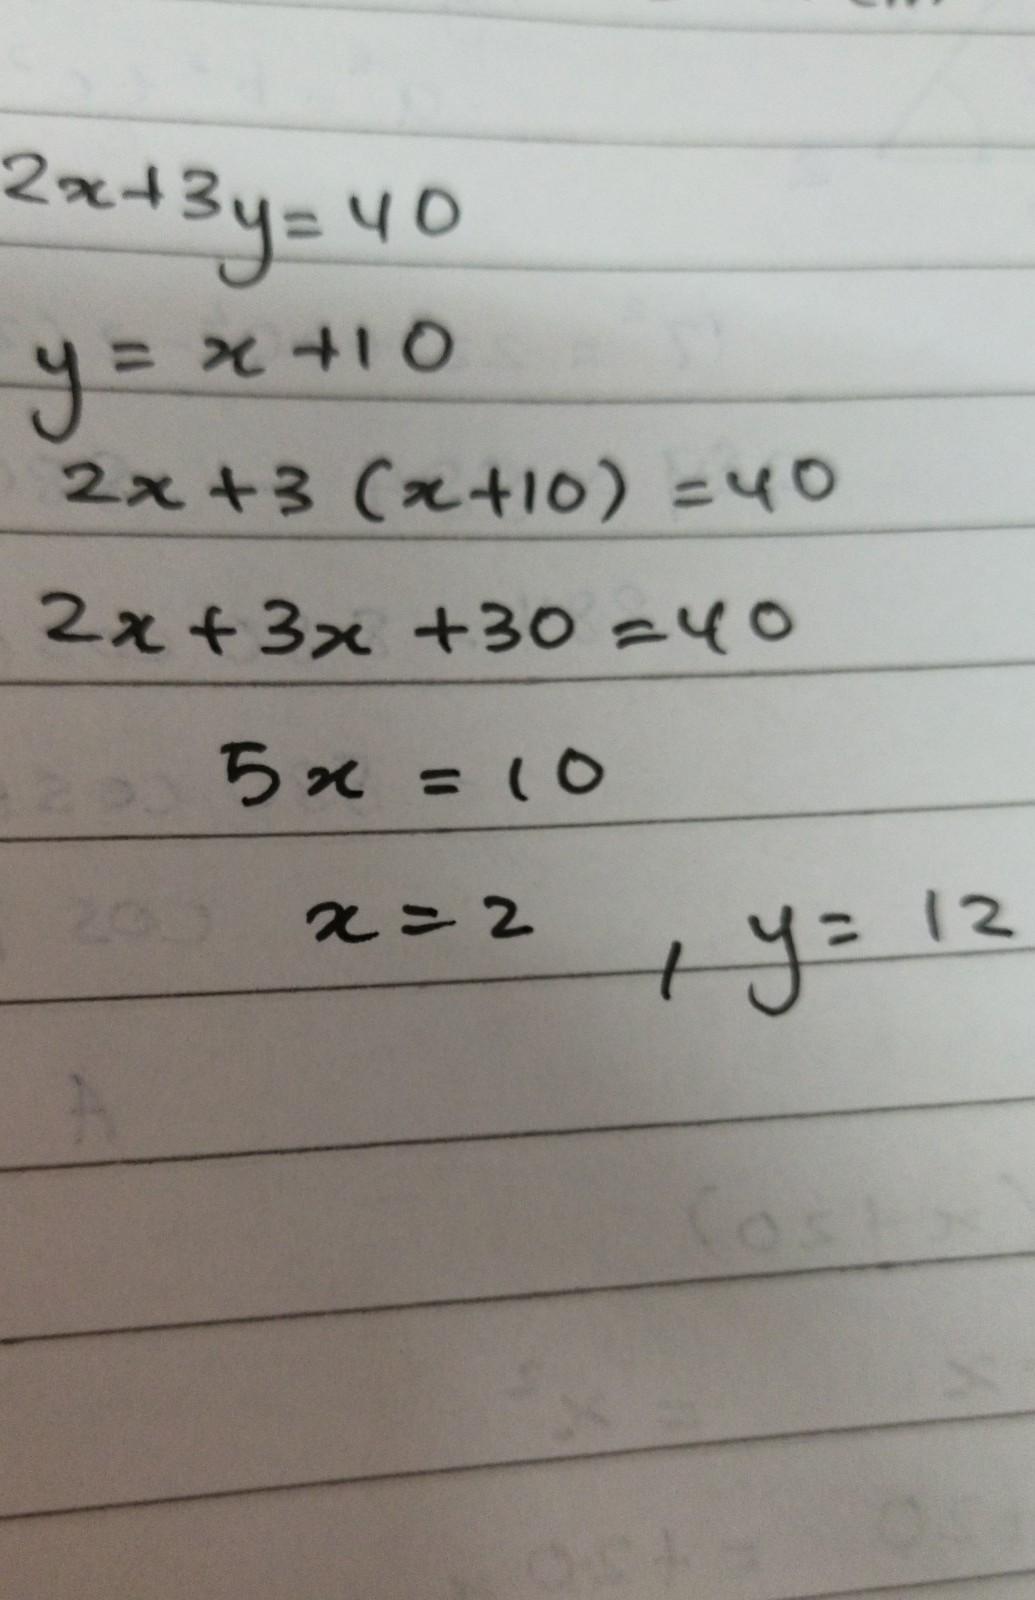 2x+3y=40
y = x+10
2x+3(x+10)=40
2x+3x+30=40
5x = 10
x=2 , y=12